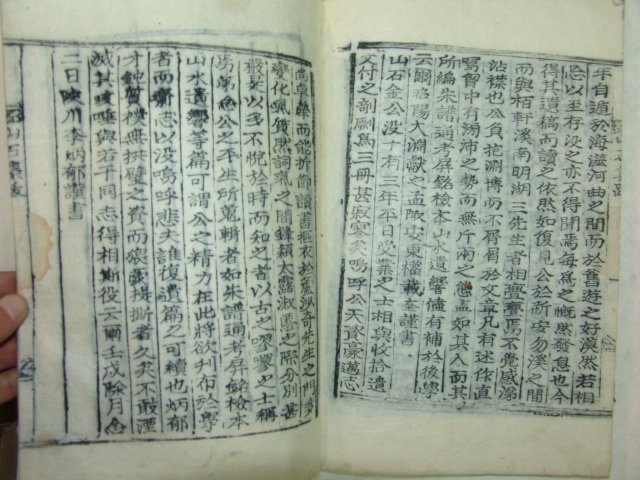 年自遁於海澨河曲之間而於舊遊之好漠然若相
忘以至存沒之亦不得聞焉每爲之慨然發息也今
得其遺稿而讀之依然如復見公於新安勿溪之間
而與栢軒溪南明湖三先生者相疊疊焉不覺感涕
沾襟也公負抱淵博而不屑屑於文章凡有述作直
寫胷中有湯沛之勢而無斤兩之態盖如其人而其
所編朱譜通考屛銘檢本山水遺響等儘有補於後學
云爾洛陽大淵獻之孟陬安東權載奎謹書
山石金公沒十有三年平日受業之士相與收拾遺
文付之剞劂爲三冊甚寂寥矣嗚呼公天資豪邁志
尙卓犖而能折節讀書摳衣於蘆沙奇先生之門多
變化氣質然詞氣之間鋒穎太露淑慝之際分別甚
嚴是以多不悅於時而知之者以古之嘐嘐之士稱
焉第念公之平生所蒐輯者如朱譜通考屛銘檢本
山水遺響等篇可謂公之精力在此將欲刊布於學
者而齎志以沒嗚呼悲夫誰復遺篇之可續也炳郁
才鈍質樸無拱璧之賚而猥蒙提撕者久矣不敢湮
滅其咳唾與若干同志得相斯役云爾壬戌除月念
二日陜川李炳郁謹書